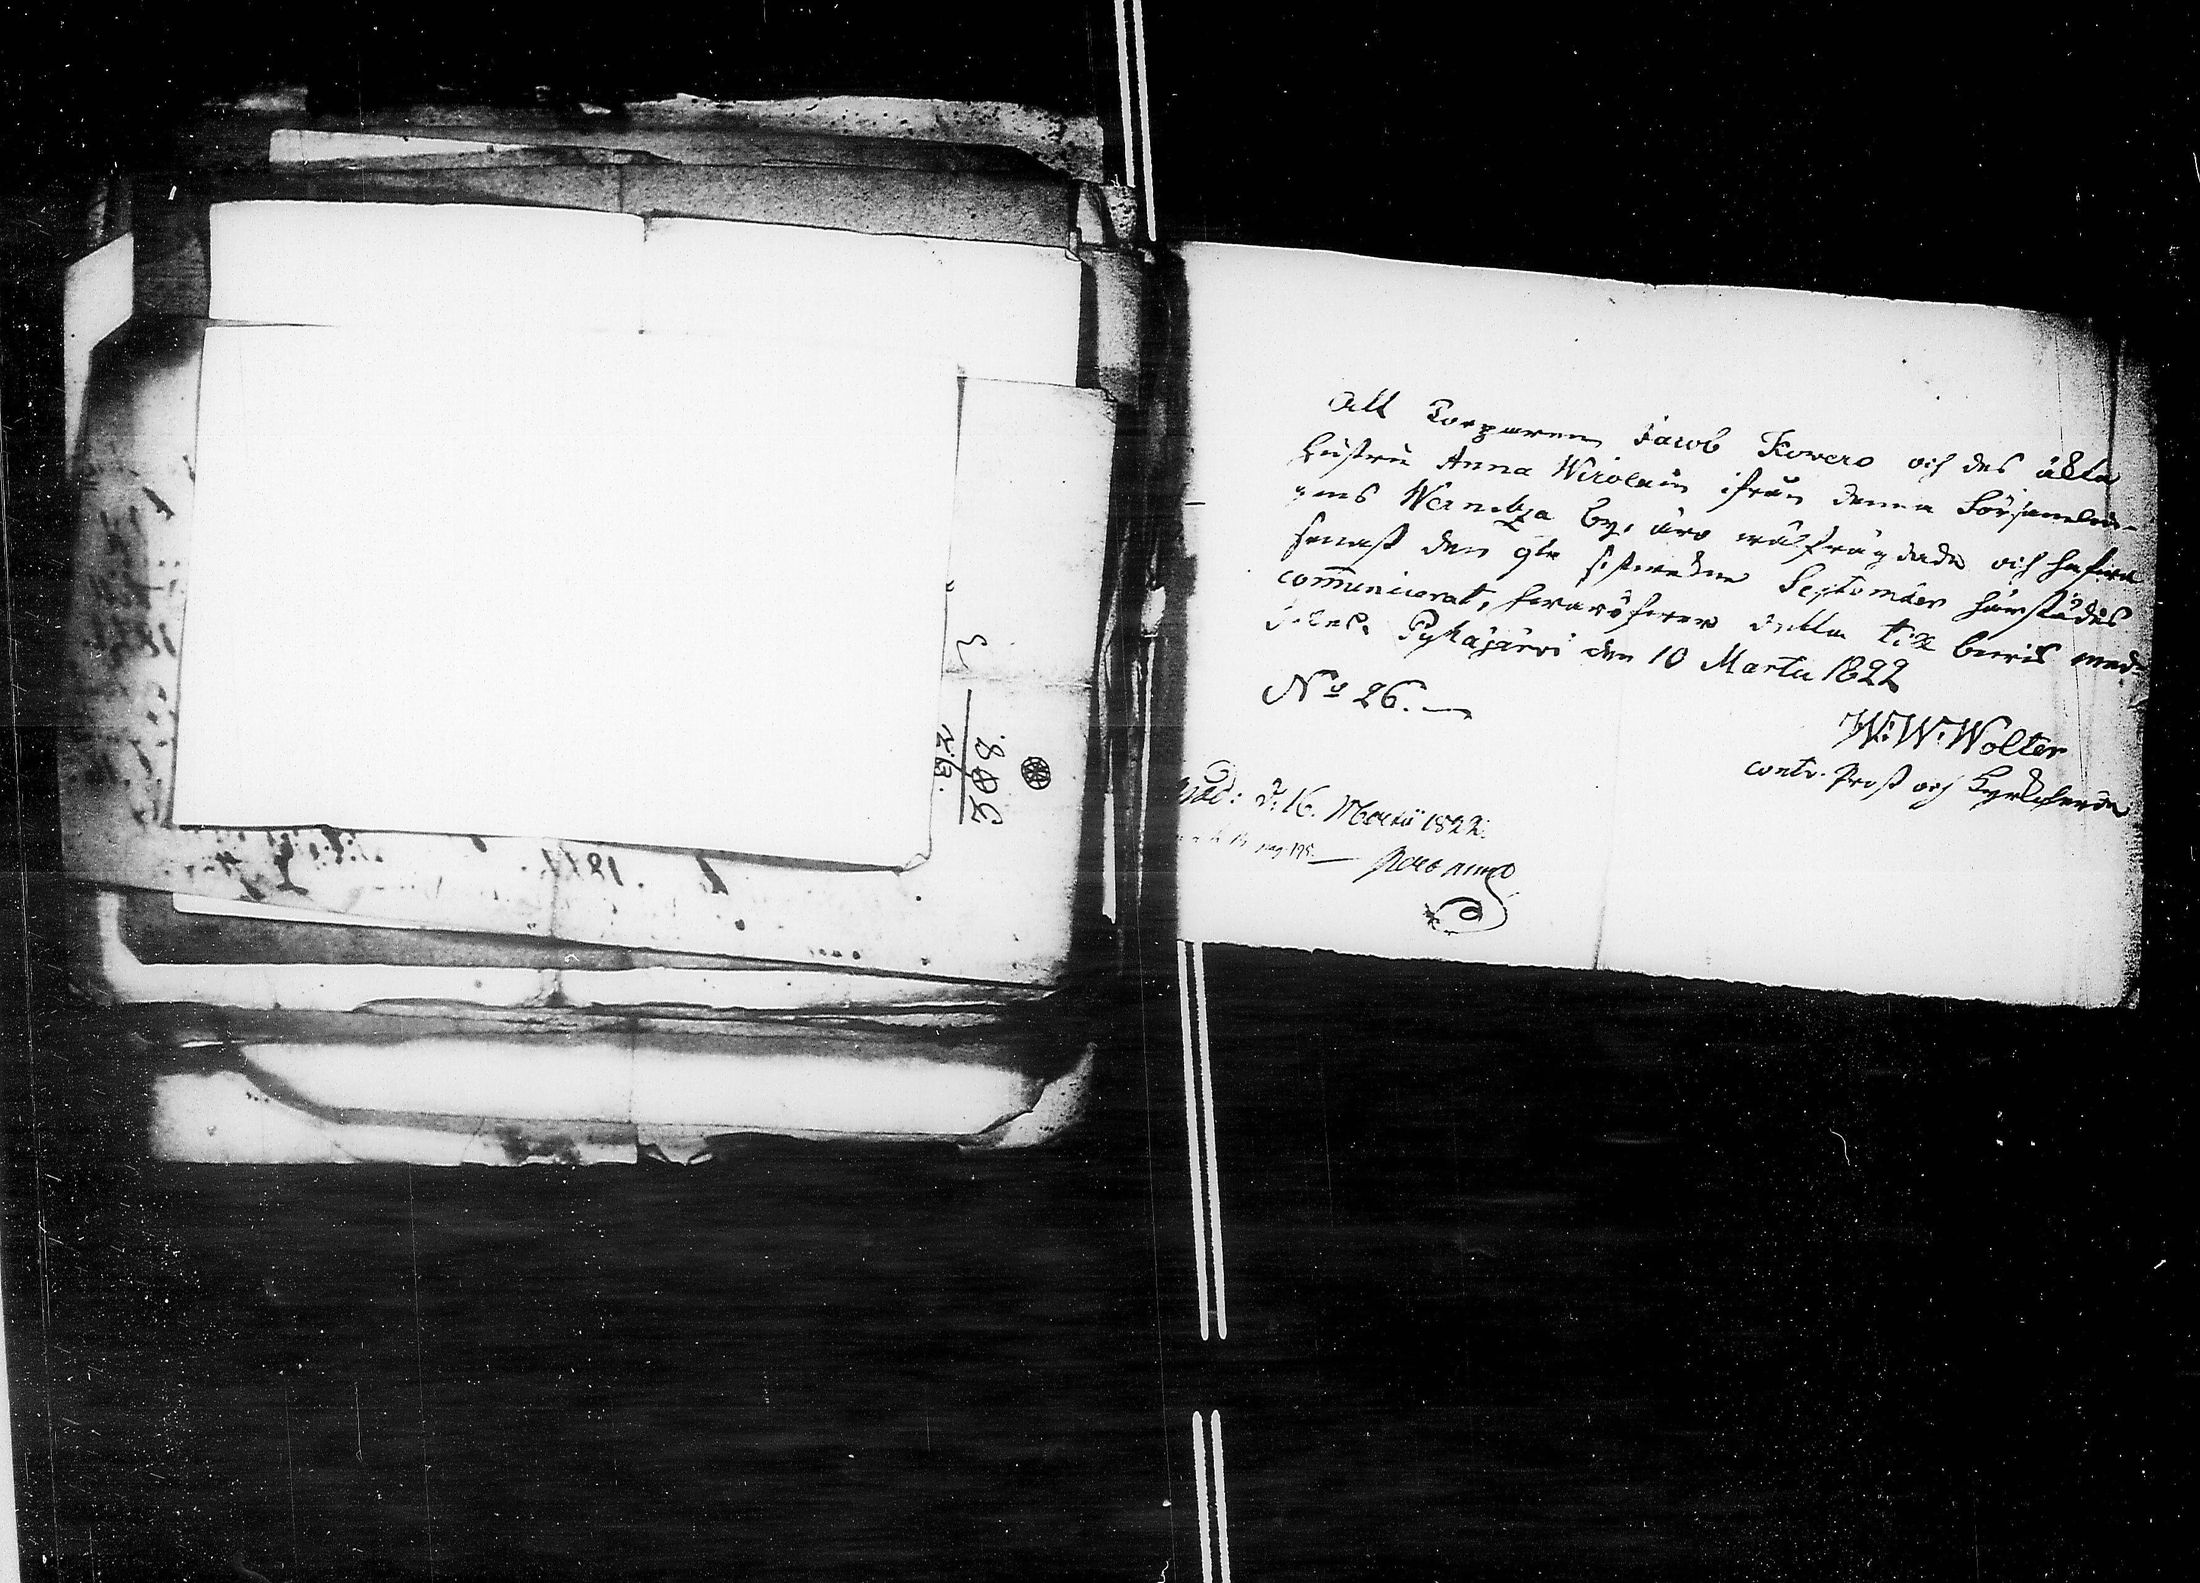 Att Torparen Jacob Kovero och des äkta
hustru Anna Wirolain ifrån denna Församlin-
gens Wernitza by, äro wälfrägdade och hafva
senast den 9de sistwekne September härstädes
communicerat, hwaröfwer detta till bevis med-
delas. Pyhäjärvi den 10 Martii 1822
N:o 26.
W: W: Wolter
contr. Prost och Kyrkoherde
d: 16. Martii 1822.
pag. 198.
308.
26.
3
1811.